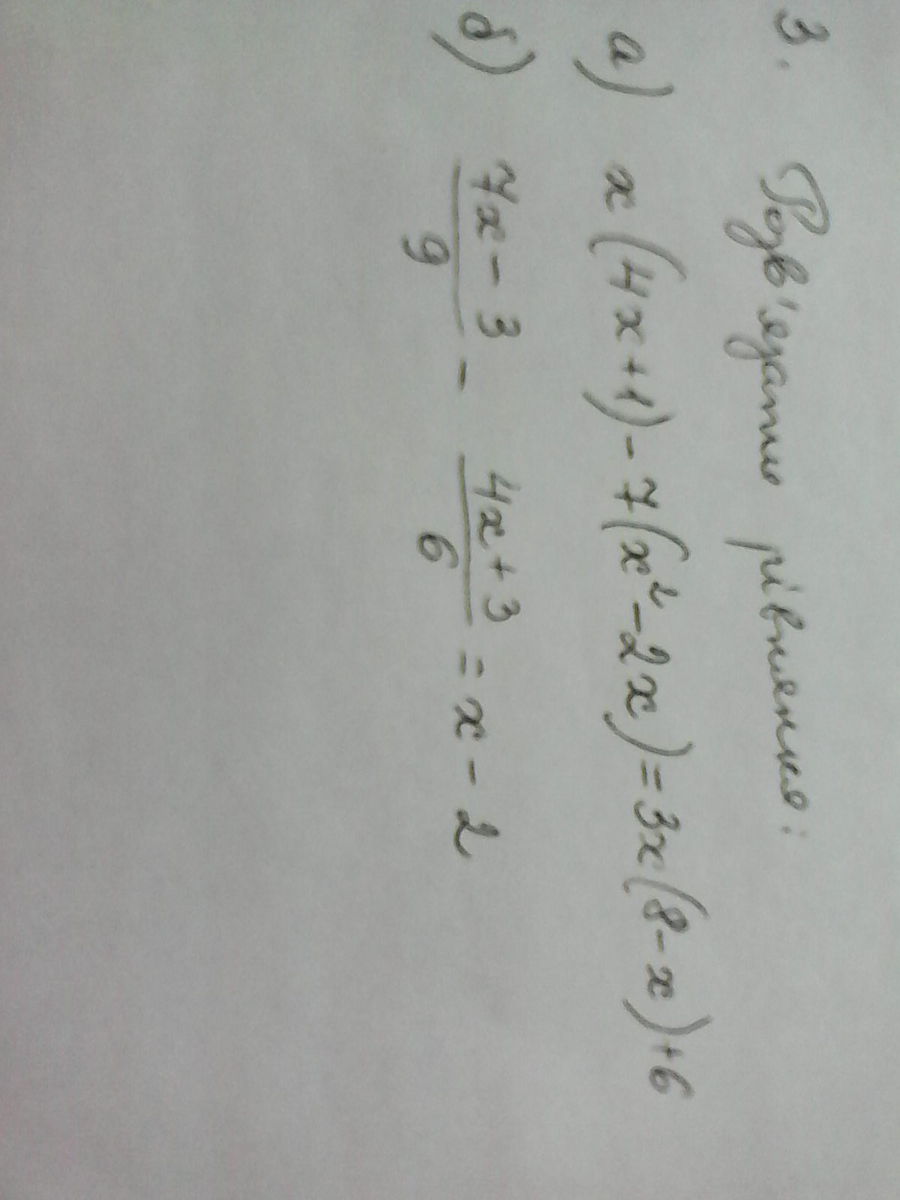 3. Розв'язати рівняння:
а) x(4x+1)-7(x²-2x)=3x(8-x)+6
б) (7x-3)/9 - (4x+3)/6 = x-2